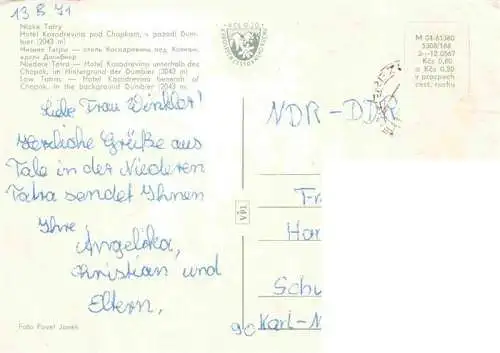 13 B 71
Nízke Tatry
Hotel Kosodrevina pod Chopkom, v pozadí Ďumbier (2043 m)
Низкие Татры — отель Косодревина под Хопком,
Niedere Tatra — Hotel Kosodrevina unterhalb des
Chopok, im Hintergrund der Ďumbier (2043 m)
Low Tatras — Hotel Kosodrevina beneath of
Chopok, in the background Ďumbier (2043 m)
Kčs 0,20
M 04-61380
5308/168
3—12.0567
Kčs 0,60
a Kčs 0,20
v prospech
cest. ruchu
Liebe Frau Winkler!
Herzliche Grüße aus
Tale in der Niederen
Tatra sendet Ihnen
Ihre
Angelika,
Christian und
Eltern.
NDR-DDR
Fr
Har
Schu
90 Karl-M
Foto Pavel Janek